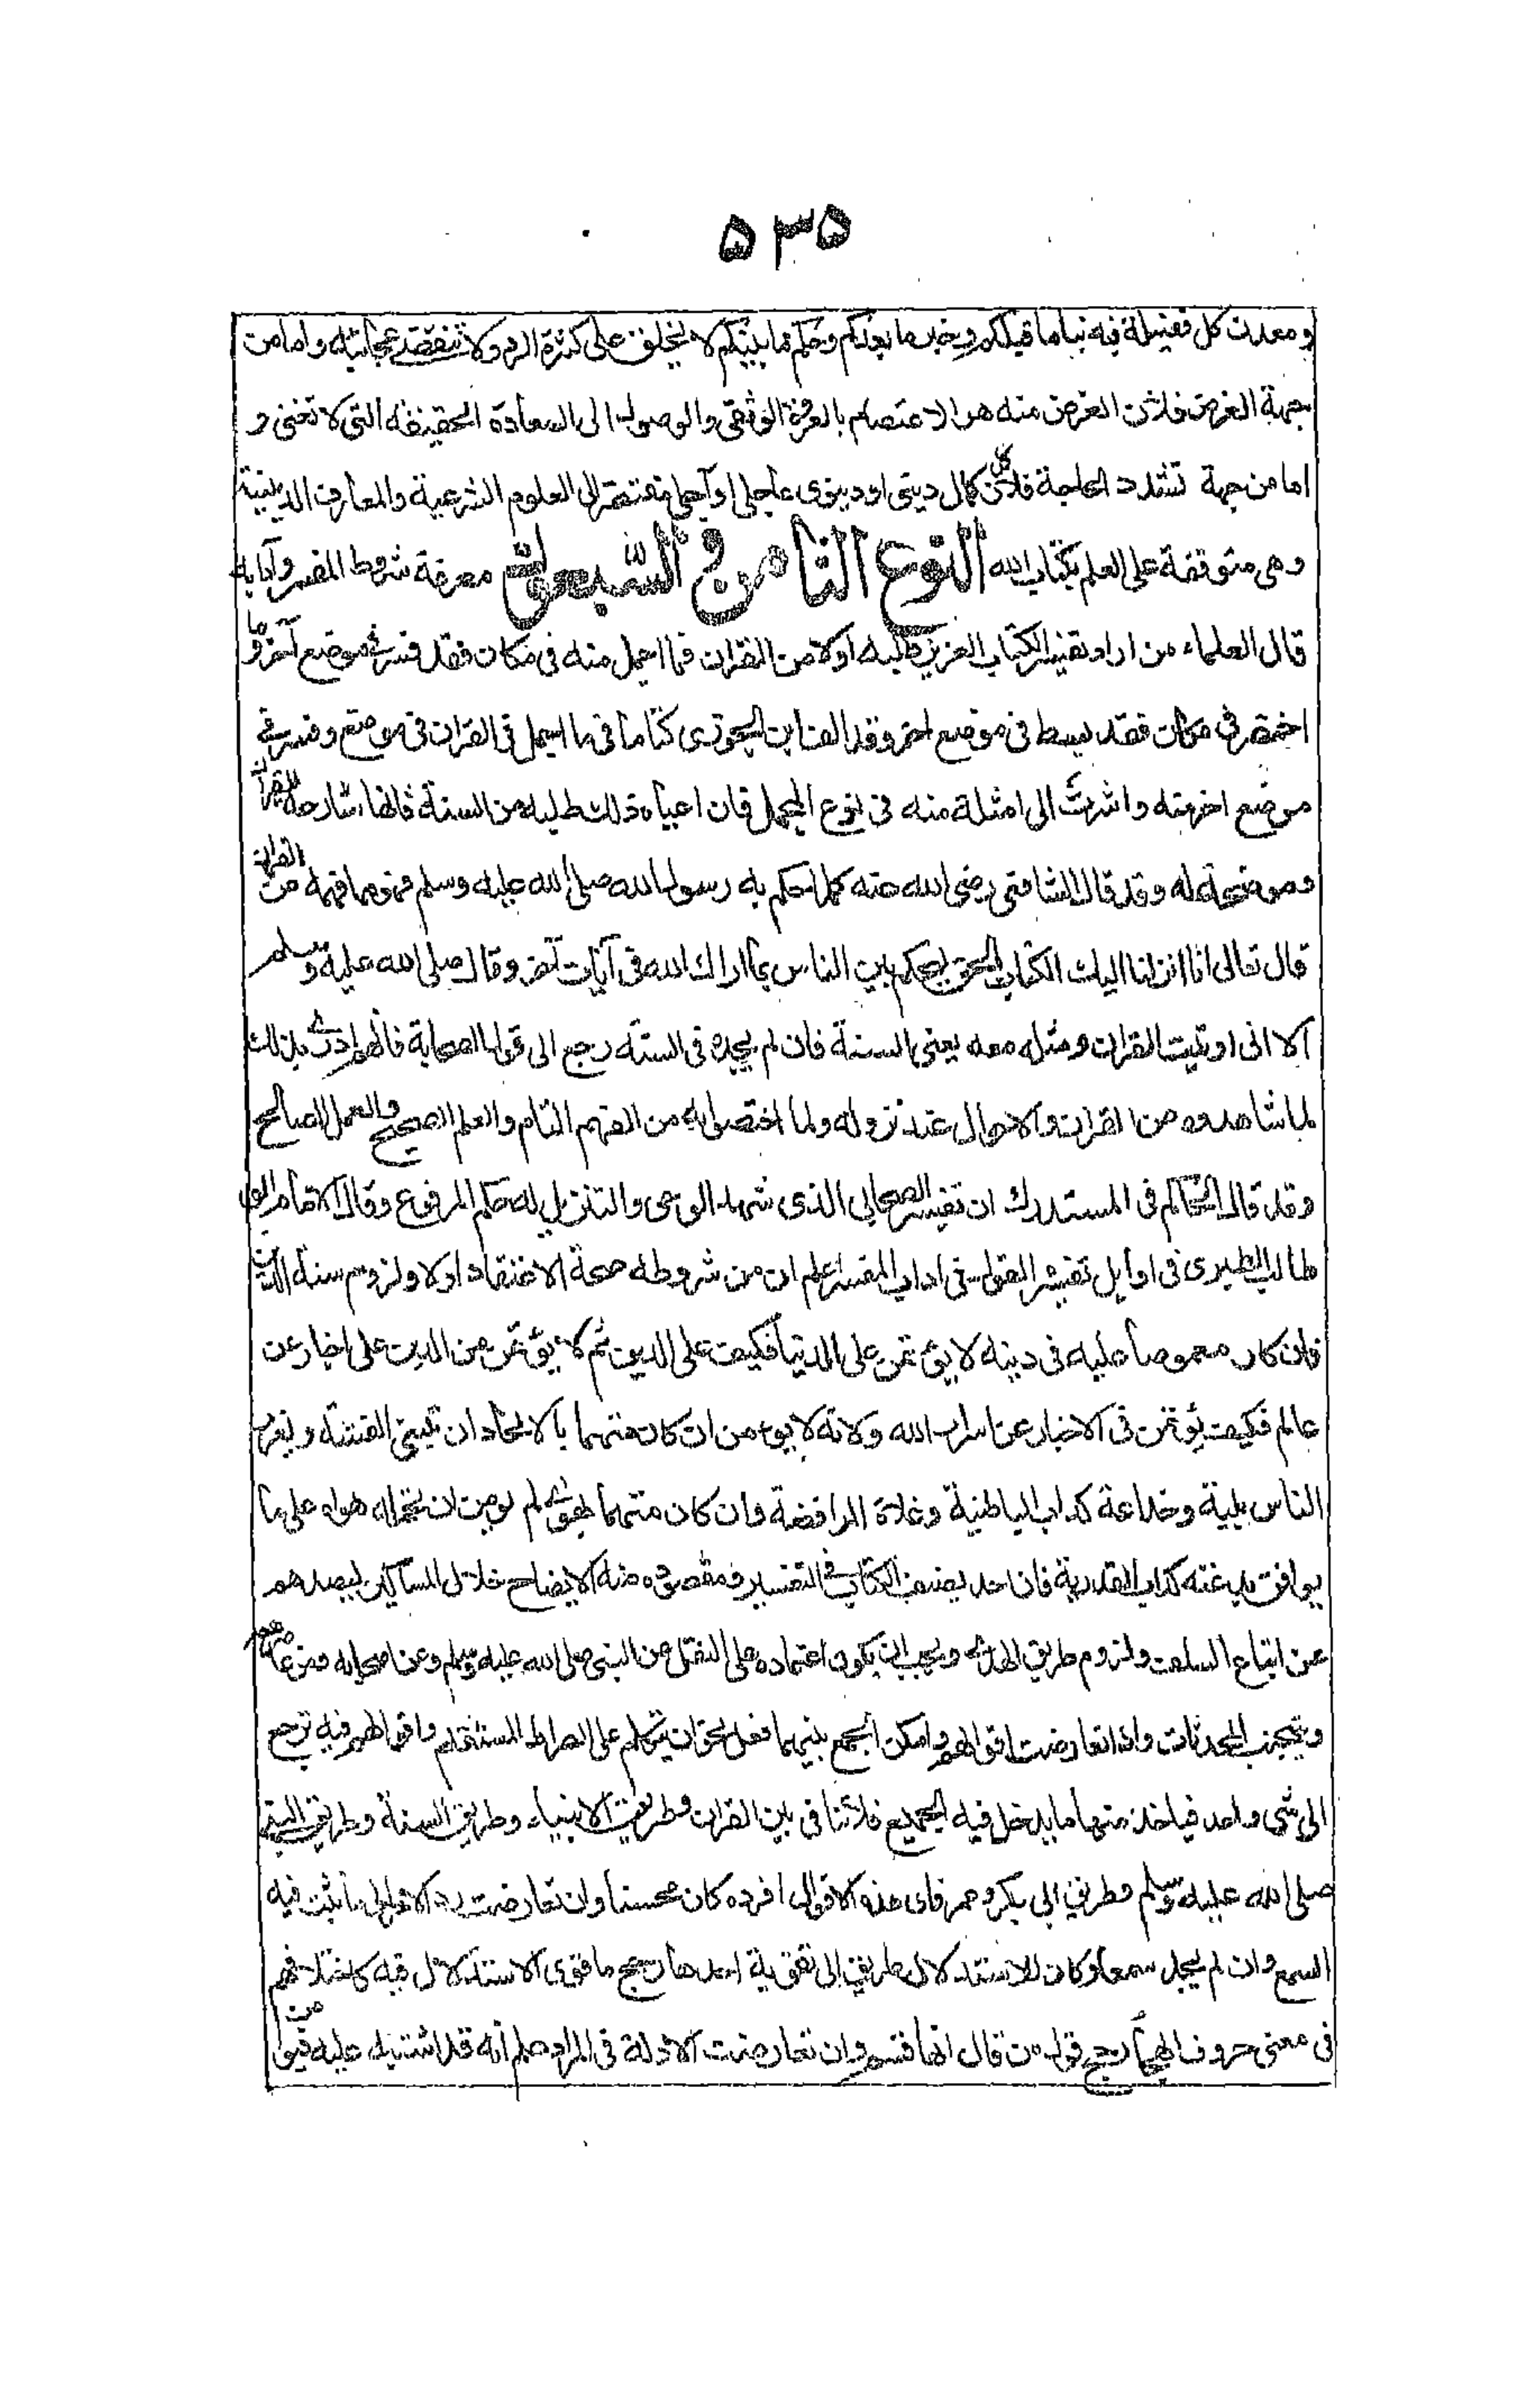 ٥٣٥
ومعدن كل فضيلة فيه نبأ ما قبلكم وخبر ما بعدكم وحكم ما بينكم لا يخلق على كثرة الرد ولا تنقضى عجائبه واما من
جهة الغرض فلان الغرض منه هو الاعتصام بالعروة الوثقى والوصول الى السعادة الحقيقية التى لا تفنى و
اما من جهة تشدد الحاجة فلان كل كمال دينى او دينوى عاجلى او آجلى مفتقر الى العلوم الشرعية والمعارف الدينية
وهى متوقفة على العلم بكتاب الله النوع الثامن والسبعون معرفة شروط المفسر وآدابه
قال العلماء من اراد تفسير الكتاب العزيز طلبه اولا من القران فما اجمل منه فى مكان فقد فسر فى موضع آخر وما
اختصر فى مكان فقد بسط فى موضع اخر وقد الف ابن الجوزى كتابا فى ما اجمل فى القران فى موضع وفسر فى
موضع اخر منه واشرت الى امثلة منه فى نوع المجمل فان اعياه ذلك طلبه من السنة فانها شارحة للقرآن
وموضحة له وقد قال الشافعى رضى الله عنه كلما حكم به رسول الله صلى الله عليه وسلم فهو مما فهمه من القران
قال تعالى انا انزلنا اليك الكتاب بالحق لتحكم بين الناس بما اراك الله فى آيات آخر وقال صلى الله عليه وسلم
آلا انى اوتيت القران ومثله معه يعنى السنة فان لم يجده فى السنة رجع الى قول الصحابة فانهم ادرى بذلك
لما شاهدوه من القران والاحوال عند نزوله ولما اختصوا به من الفهم التام والعلم الصحيح والعمل الصالح
وقد قال الحاكم فى المستدرك ان تفسير الصحابى الذى شهد الوحى والتنزيل له حكم المرفوع وقال الامام ابو
طالب الطبرى فى اوايل تفسيره القول فى اداب المفسر اعلم ان من شروطه صحة الاعتقاد اولا ولزوم سنة الدين
فان كان مغموصا عليه فى دينه لا يؤتمن على الدنيا فكيف على الدين ثم لا يؤتمن من الدين على اخبار عن
عالم فكيف يؤتمن فى الاخبار عن اسرار الله ولانه لا يؤمن ان كان متهما بالالحاد ان يبغى الفتنة ويغر
الناس بلية وخداعة كداب الباطنية وغلاة الرافضة وان كان متهما بهوى لم يومن ان يحمله هواه على ما
يوافق بدعته كداب القدرية فان احد يصنف الكتاب فى التفسير ومقصوده منه الايضاح خلال المساكين ليصدهم
عن اتباع السلف ولزوم طريق الهدى ويجب ان يكون اعتماده على النقل عن النبى صلى الله عليه وسلم وعن اصحابه ومن عاصرهم
ويتجنب المحدثات واذا تعارضت اقوالهم وامكن الجمع بينهما فعل نحو ان يتكلم على الصراط المستقيم واقوالهم فيه ترجع
الى شى واحد فياخذ منها ما يدخل فيه الجميع فلا تنافى بين القران وطريق الانبياء وطريق السنة وطريق النبى
صلى الله عليه وسلم وطريق ابى بكر وعمر فاى هذه الاقوال افرده كان محسنا وان تعارضت رد الامر الى ما ثبت فيه
السمع وان لم يجد سمعا وكان للاستدلال طريق الى تقوية احدها رجح ما قوى الاستدلال فيه كاختلافهم
فى معنى حروف الهجا رجح قول من قال انها قسم وان تعارضت الادلة فى المراد علم انه قد اشتبه عليه فيؤمن